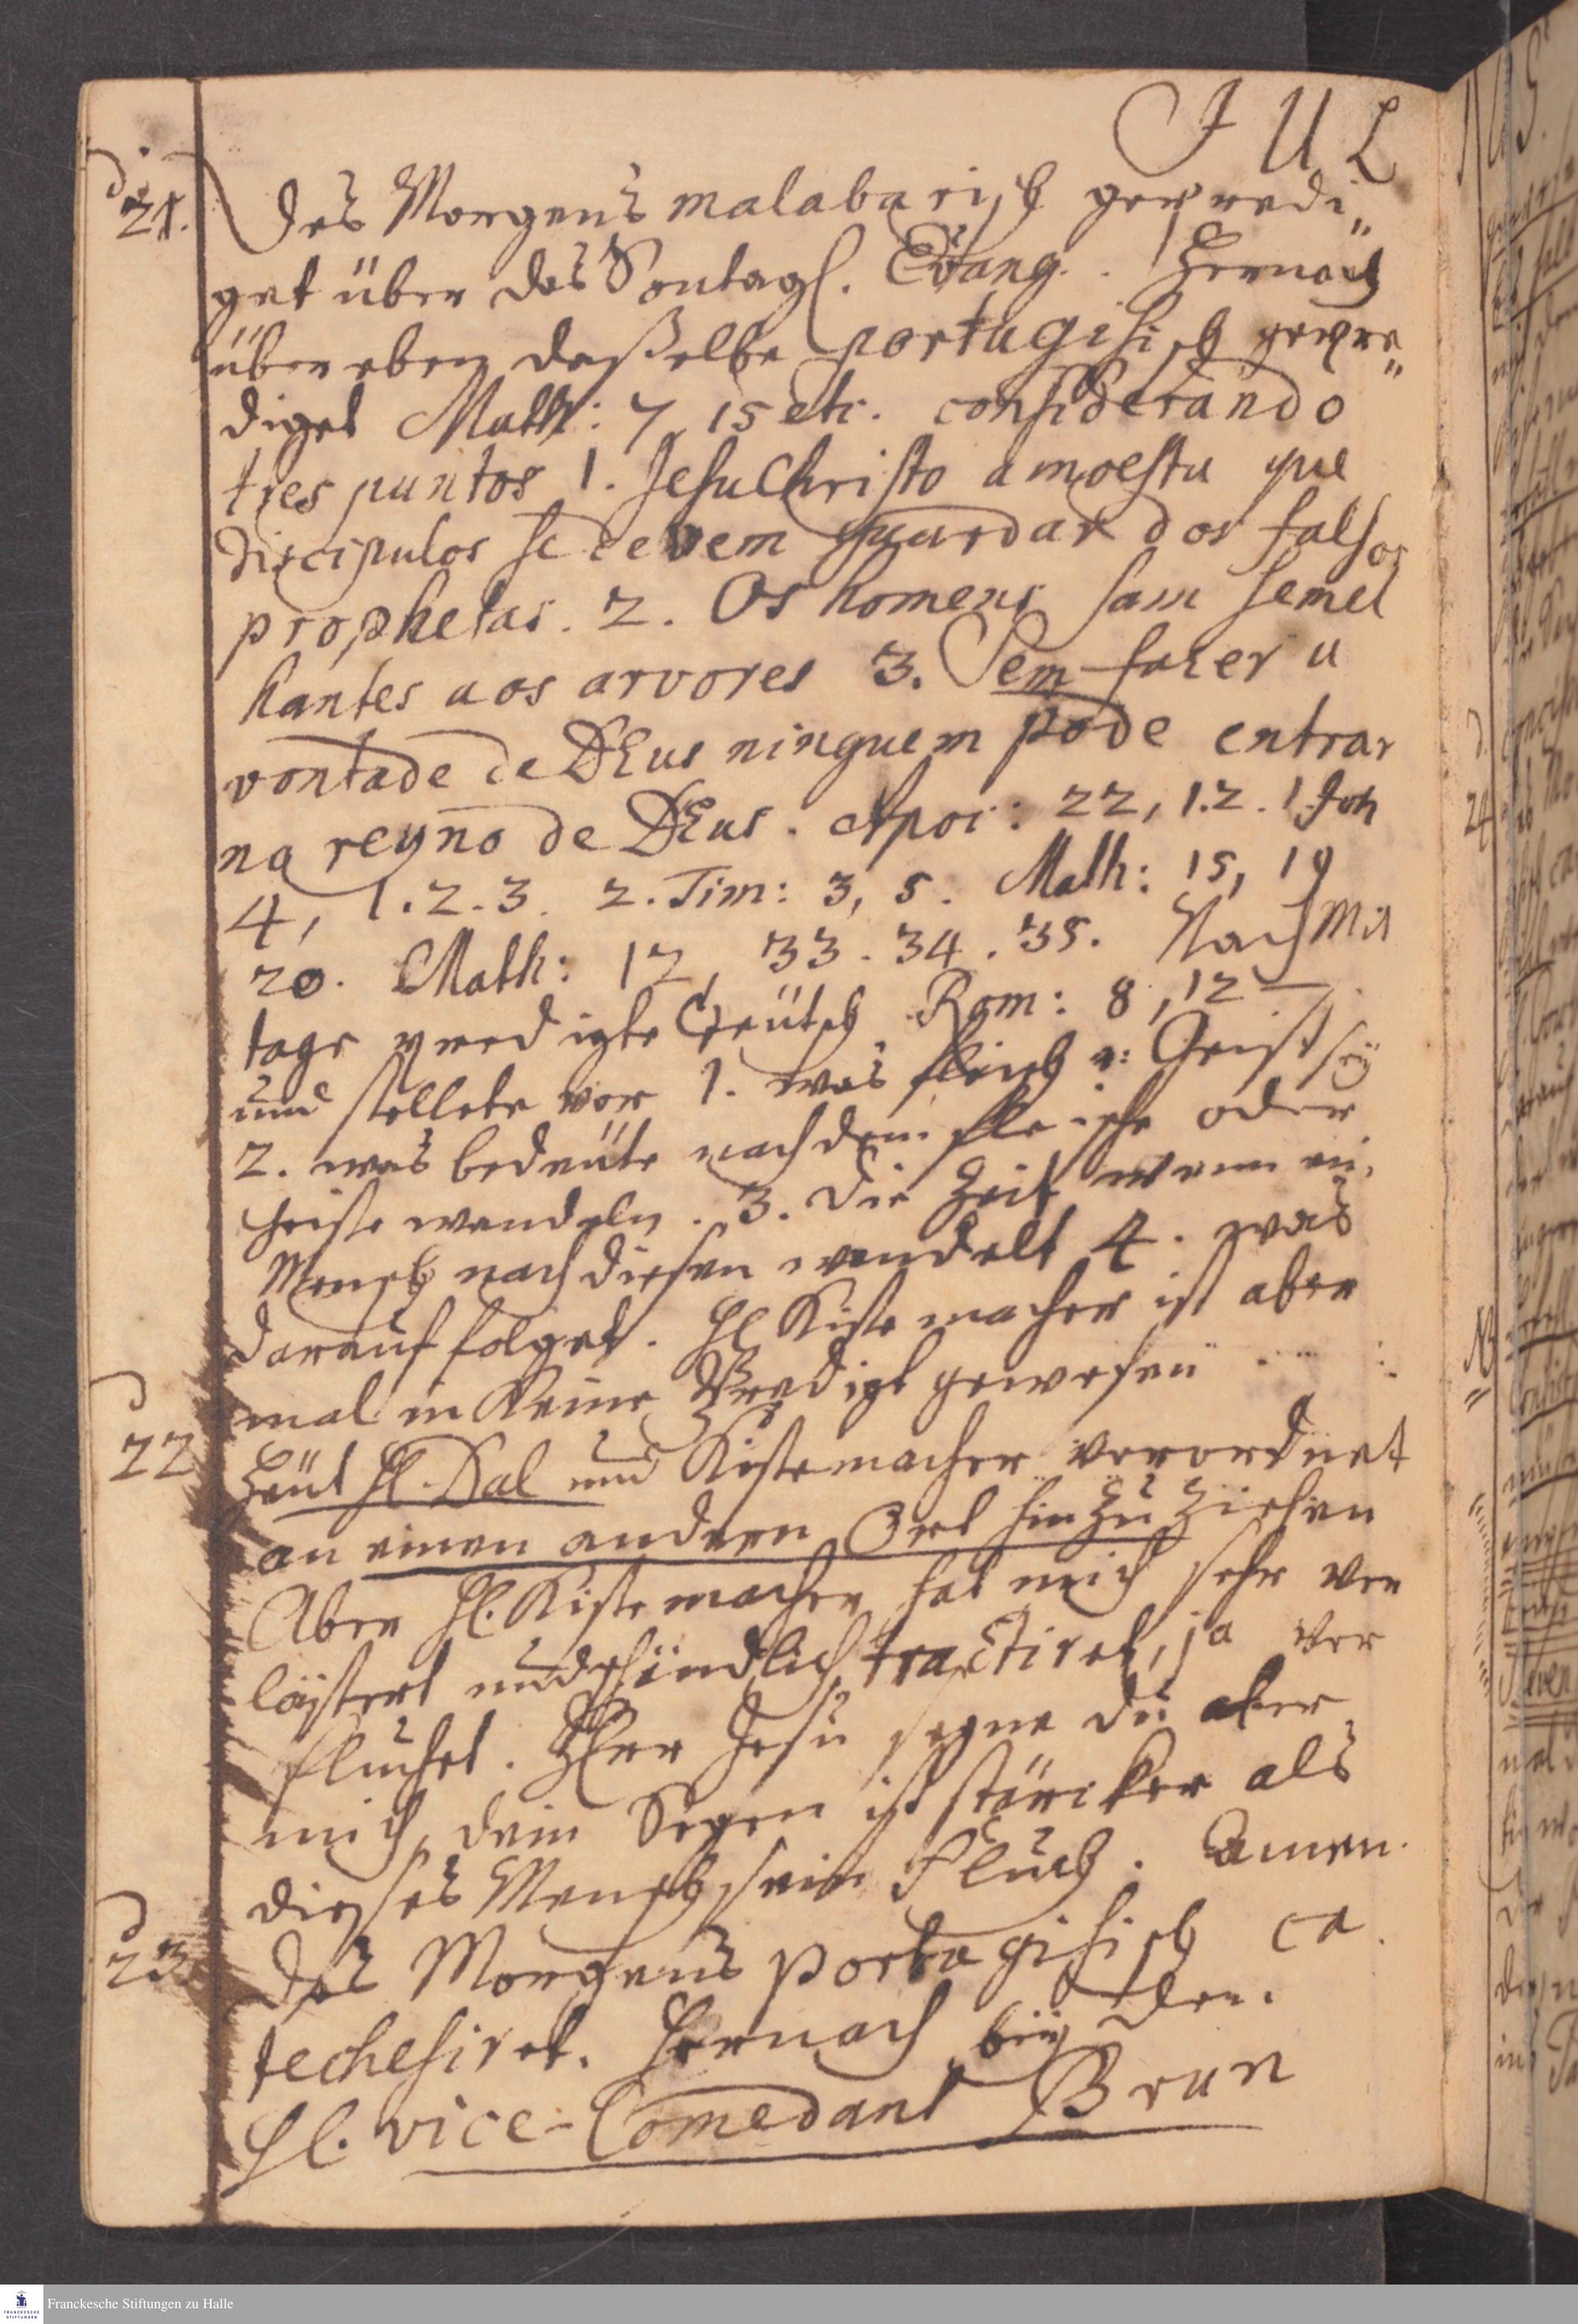 JUL
d. 21. Des Morgens malabarisch gepredi„
get über das Sontagl. Evang. Hernach
über eben daßelbe portugisisch gepre„
diget Math: 7, 15 etc. considerando
tres puntos 1. Jesu Christo amoesta que
discipulos se devem guardar dos falsos
prophetas. 2. Os homens sam semel
hantes aos arvores 3. Sem fazer a
vontade de DEus ninguem pode entrar
na reyno de DEus. Apoc: 22, 1.2. 1. Joh
4, 1.2.3. 2. Tim: 3, 5. Math: 15, 19
20. Math: 12, 33. 34. 35. Nach Mit
tags predigte Teütsch Rom: 8, 12
und stellete vor 1. was fleisch u: Geist seÿ
2. was bedeüte nach dem fleische oder
Geiste wandeln. 3. Die Zeit wenn ein
Mensch nach diesen wandelt 4. was
darauf folget. Hl Kistemacher ist aber
mal in keine Predigt gewesen
d 22 Heüt Hl. Dal und Kistemacher verordnet
an einen andern Ort hin zu ziehen
Aber Hl. Kistemacher hat mich sehr ver
lästert und schändlich tractiret, ja ver
fluchet. HErr Jesu segne du aber
mich, dein Segen ist stärcker als
dieses Mensch sein Fluch. Amen.
d 23. Des Morgens portugisisch ca
techesiret. Hernach beÿ den
Hl. vice-Comedant Brun
Franckesche Stiftungen zu Halle